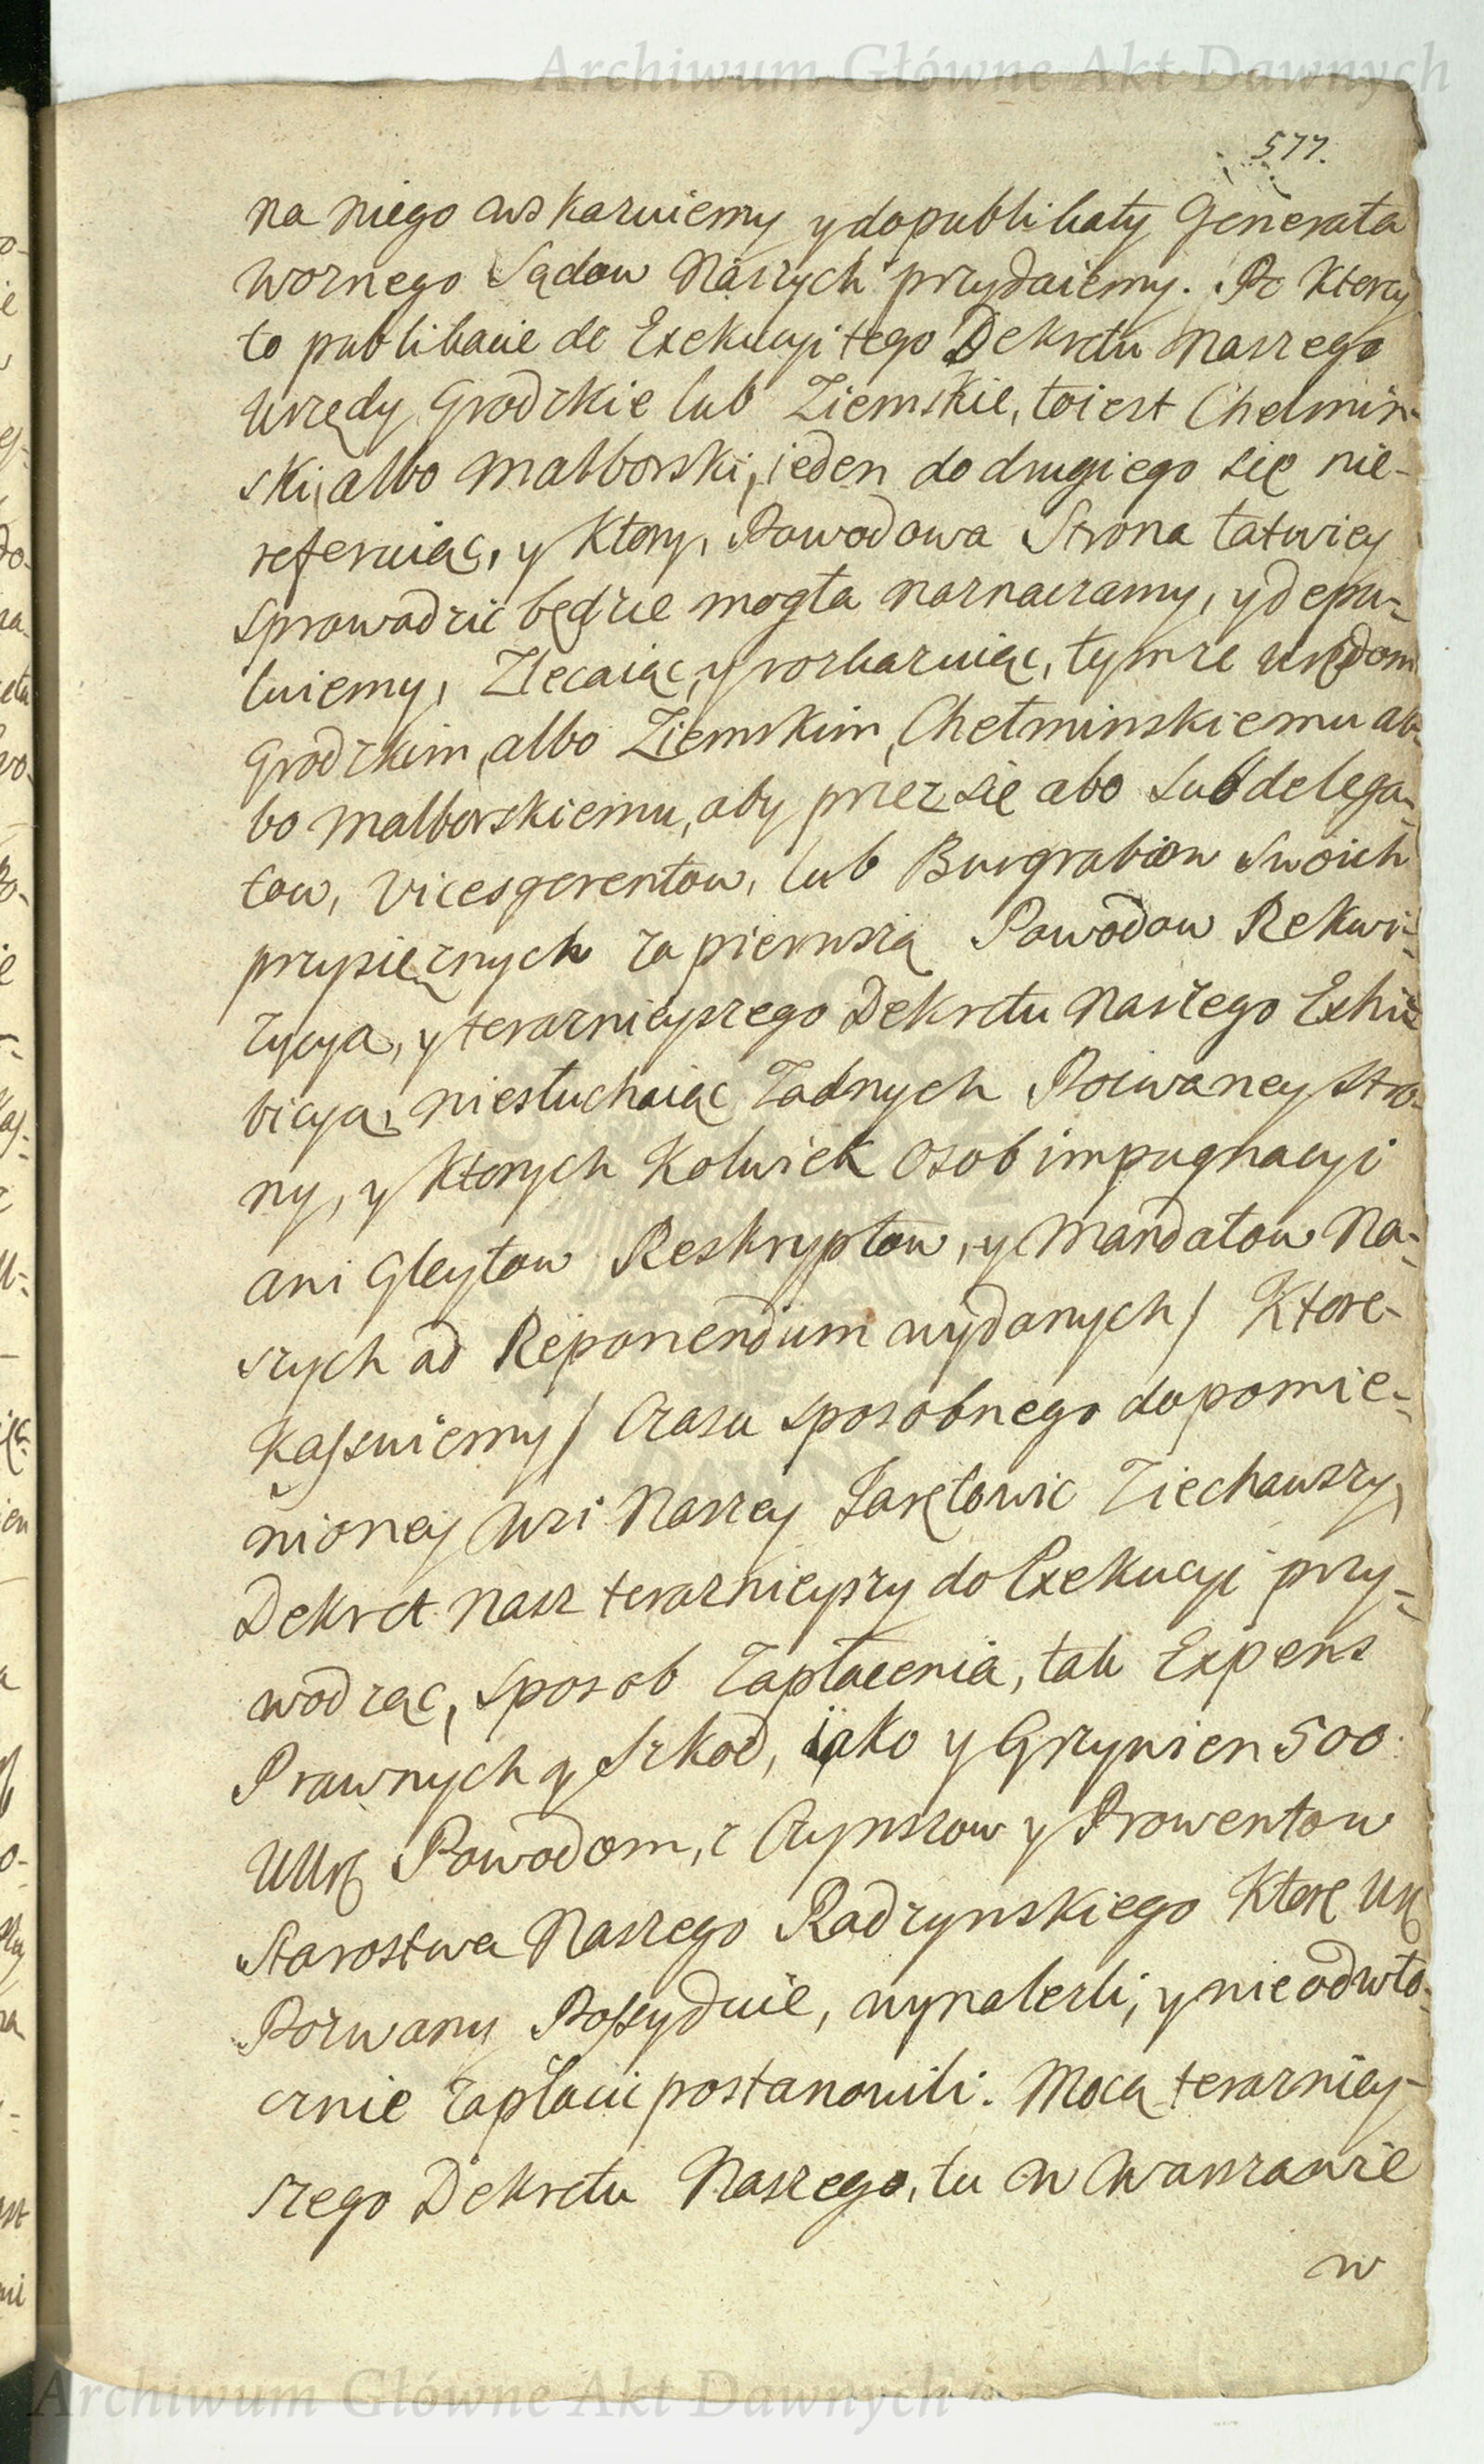 Archiwum Główne Akt Dawnych
577.
na niego wskazuiemy y do publikaty Generała
Woznego Sądow Naszych przydaiemy. Po Ktorey
to publikacie do Exekucyi tego Dekretu Naszego
Urzędy Grodzkie lub Ziemskie, to iest Chełmin-
ski, albo Malborski, ieden do drugiego się nie-
referuiąc, y Ktory, Powodowa Strona łatwiey
sprowadzić będzie mogła naznaczamy, y depu-
tuiemy, Zlecaiąc, y rozkazuiąc, tymże Urzędom
Grodzkim, albo Ziemskim, Chełminskiemu al-
bo Malborskiemu, aby przez się abo Subdelega-
tow, Vicesgerentow, lub Burgrabiow Swoich
przysięznych za pierwszą Powodow Rekwi-
zycyą, y teraznieyszego Dekretu Naszego Exhi-
bicyą, niesłuchaiąc Zadnych Pozwaney Stro-
ny, y Ktorych Kolwiek Osob impugnacyi
ani Gleytow Reskryptow, y Mandatow Na-
szych ad Reponendum wydanych / Ktore-
Kassuiemy / Czasu sposobnego do pomie-
nioney Wsi Naszey Zakętowic Ziechawszy,
Dekret Nasz teraznieyszy do Exekucyi przy-
wodząc, sposob Zapłacenia, tak Expens
Prawnych y Szkod, iako y Grzywien 500
UUrż Powodom, z Czynszow y Prowentow
Starostwa Naszego Radzynskiego Ktore Urż
Pozwany Possyduie, wynalezli, y nieodwło-
cznie zapłacic postanowili. Mocą terazniey-
szego Dekretu Naszego, tu w Warszawie
w
Archiwum Główne Akt Dawnych